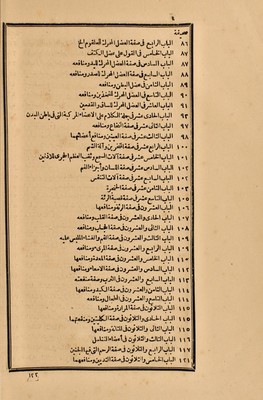 ٤
صحيفة
٨٦ الباب الرابع في صفة العضل المحرك للحلقوم الخ
٨٧ الباب الخامس في القول على عضل الكتف
٨٧ الباب السادس في صفة العضل المحرك لليد ومنافعه
٩٠ الباب السابع في صفة العضل المحرك للصدر ومنافعه
٩١ الباب الثامن في عضل البطن ومنافعه
٩١ الباب التاسع في العضل المحرك للفخذين ومنافعه
الباب العاشر في العضل المحرك للساق والقدمين
الباب الحادي عشر في جملة الكلام على الاعضاء المركبة التي في باطن البدن
٩٧ الباب الثاني عشر في صفة النخاع ومنافعه
٩٨ الباب الثالث عشر في صفة العينين ومنافع أعضائهما
١٠٠ الباب الرابع عشر في صفة المنخرين وآلة الشم
الباب الخامس عشر في صفة آلات السمع وثقب العظم الحجري للاذنين
الباب السادس عشر في صفة اللسان وأجزاء الفم
١٠٢ الباب السابع عشر في صفة آلات التنفس
الباب الثامن عشر في صفة الحنجرة
الباب التاسع عشر في صفة قصبة الرئة
الباب العشرون في صفة الرئة ومنافعها
الباب الحادي والعشرون في صفة القلب ومنافعه
الباب الثاني والعشرون في صفة الحجاب ومنافعه
الباب الثالث والعشرون في صفة الفم والغشاء الملبس عليه
الباب الرابع والعشرون في صفة المريء ومنافعه
الباب الخامس والعشرون في صفة المعدة ومنافعها
الباب السادس والعشرون في صفة الامعاء ومنافعها
١١٣ الباب السابع والعشرون في الثرب وصفة منفعته
١١٤ الباب الثامن والعشرون في صفة الكبد ومنافعها
الباب التاسع والعشرون في الطحال ومنافعه
الباب الثلاثون في صفة المرارة ومنافعها
الباب الحادي والثلاثون في صفة الكليتين ومنفعتهما
الباب الثاني والثلاثون في المثانة ومنافعها
الباب الثالث والثلاثون في أعضاء التناسل
١١٧ الباب الرابع والثلاثون في صفة الرحم التي فيها الجنين
١٢١ الباب الخامس والثلاثون في صفة الثديين ومنافعهما